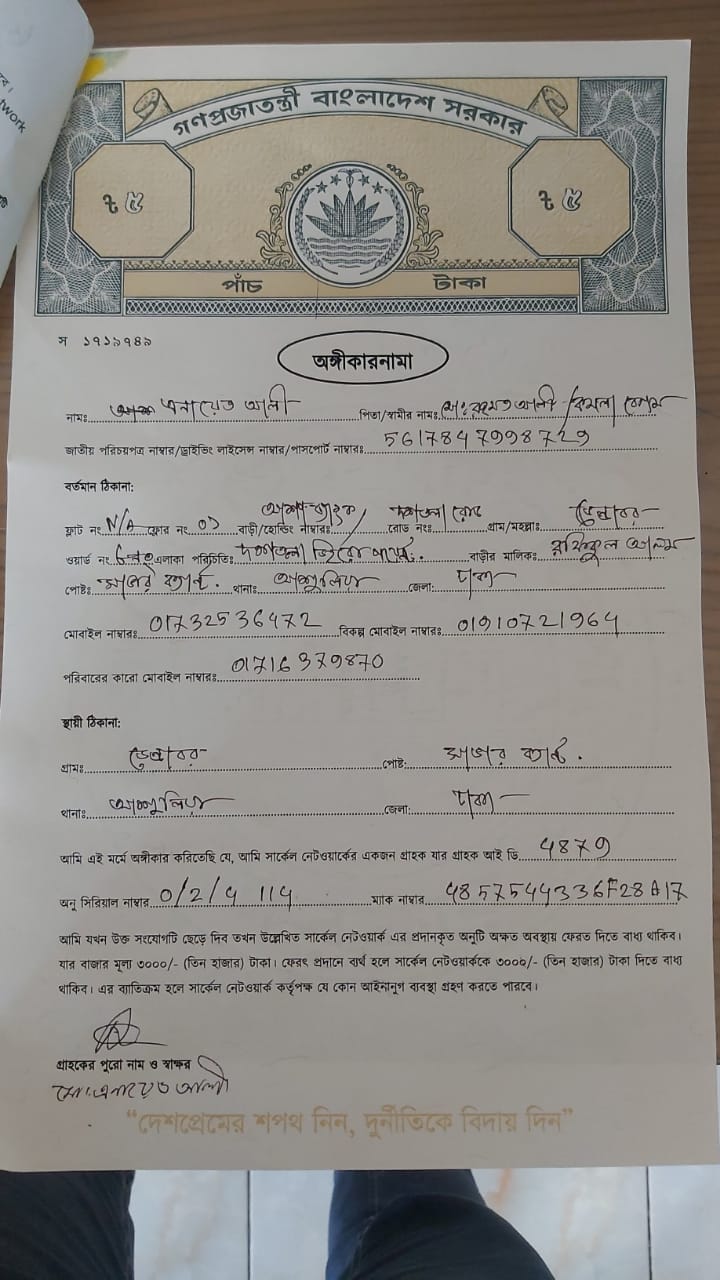 twork
গণপ্রজাতন্ত্রী বাংলাদেশ সরকার
৳ ৫ ৳ ৫
পাঁচ টাকা
স ১৭১৯৭৪৯
অঙ্গীকারনামা
নামঃ এনায়েত আলী পিতা/স্বামীর নামঃ মোঃ রহমত আলী / বেগম
জাতীয় পরিচয়পত্র নাম্বার/ড্রাইভিং লাইসেন্স নাম্বার/পাসপোর্ট নাম্বারঃ 5617847998729
বর্তমান ঠিকানা:
ফ্লাট নং N/A ফ্লোর নং ০১ বাড়ী/হোল্ডিং নাম্বারঃ রোড নংঃ রোড গ্রাম/মহল্লাঃ
ওয়ার্ড নং এলাকা পরিচিতিঃ বাড়ীর মালিকঃ রফিকুল আলম
পোষ্টঃ থানাঃ আশুলিয়া জেলা: ঢাকা
মোবাইল নাম্বারঃ 01732536472 বিকল্প মোবাইল নাম্বারঃ 01910721964
পরিবারের কারো মোবাইল নাম্বারঃ 01716379870
স্থায়ী ঠিকানা:
গ্রামঃ পোষ্ট:
থানাঃ আশুলিয়া জেলা: ঢাকা
আমি এই মর্মে অঙ্গীকার করিতেছি যে, আমি সার্কেল নেটওয়ার্কের একজন গ্রাহক যার গ্রাহক আই ডি 4879
অনু সিরিয়াল নাম্বার 0/2/4 114 ম্যাক নাম্বার 48575444336F28A17
আমি যখন উক্ত সংযোগটি ছেড়ে দিব তখন উল্লেখিত সার্কেল নেটওয়ার্ক এর প্রদানকৃত অনুটি অক্ষত অবস্থায় ফেরত দিতে বাধ্য থাকিব।
যার বাজার মূল্য ৩০০০/- (তিন হাজার) টাকা। ফেরৎ প্রদানে ব্যর্থ হলে সার্কেল নেটওয়ার্ককে ৩০০০/- (তিন হাজার) টাকা দিতে বাধ্য
থাকিব। এর ব্যতিক্রম হলে সার্কেল নেটওয়ার্ক কর্তৃপক্ষ যে কোন আইনানুগ ব্যবস্থা গ্রহণ করতে পারবে।
গ্রাহকের পুরো নাম ও স্বাক্ষর
মোঃ এনায়েত আলী
“দেশপ্রেমের শপথ নিন, দুর্নীতিকে বিদায় দিন”